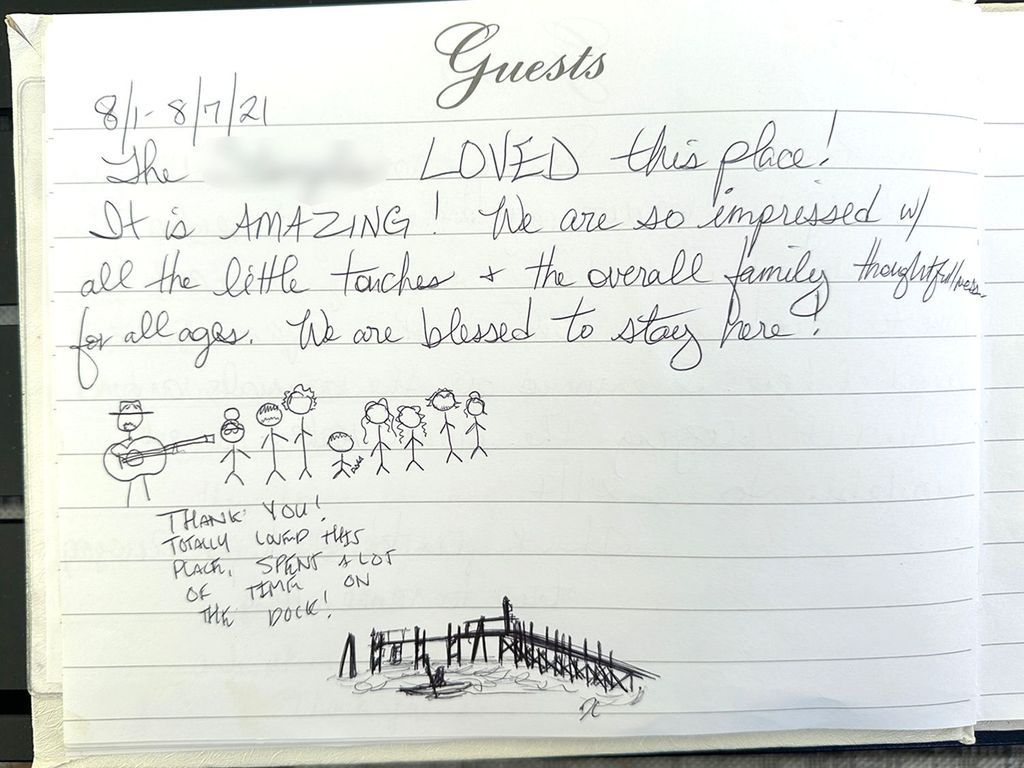 Guests
8/1-8/7/21
The LOVED this place!
It is AMAZING! We are so impressed w/
all the little touches + the overall family thoughtfullness
for all ages. We are blessed to stay here!
THANK YOU!
TOTALLY LOVED THIS
PLACE, SPENT A LOT
OF TIME ON
THE DOCK!